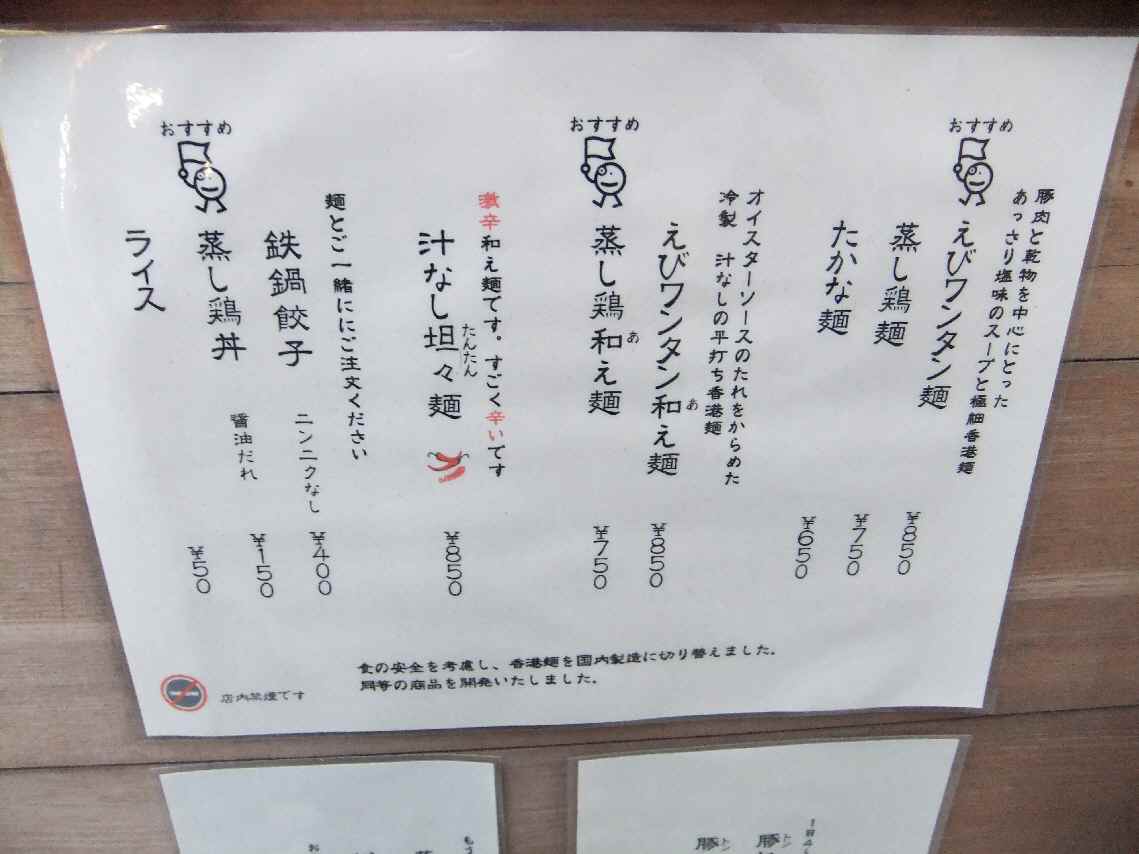 豚肉と乾物を中心にとった
あっさり塩味のスープと極細香港麺
おすすめ
えびワンタン麺 ¥850
蒸し鶏麺 ¥750
たかな麺 ¥650
オイスターソースのたれをからめた
冷製 汁なしの平打ち香港麺
えびワンタン和え麺 ¥850
あ
おすすめ
蒸し鶏和え麺 ¥750
あ
激辛和え麺です。すごく辛いです
汁なし坦々麺 ¥850
たんたん
麺とご一緒ににご注文ください
鉄鍋餃子 ニンニクなし ¥400
おすすめ
蒸し鶏丼 醤油だれ ¥150
ライス ¥50
食の安全を考慮し、香港麺を国内製造に切り替えました。
同等の商品を開発いたしました。
店内禁煙です
豚
トン
豚
トン